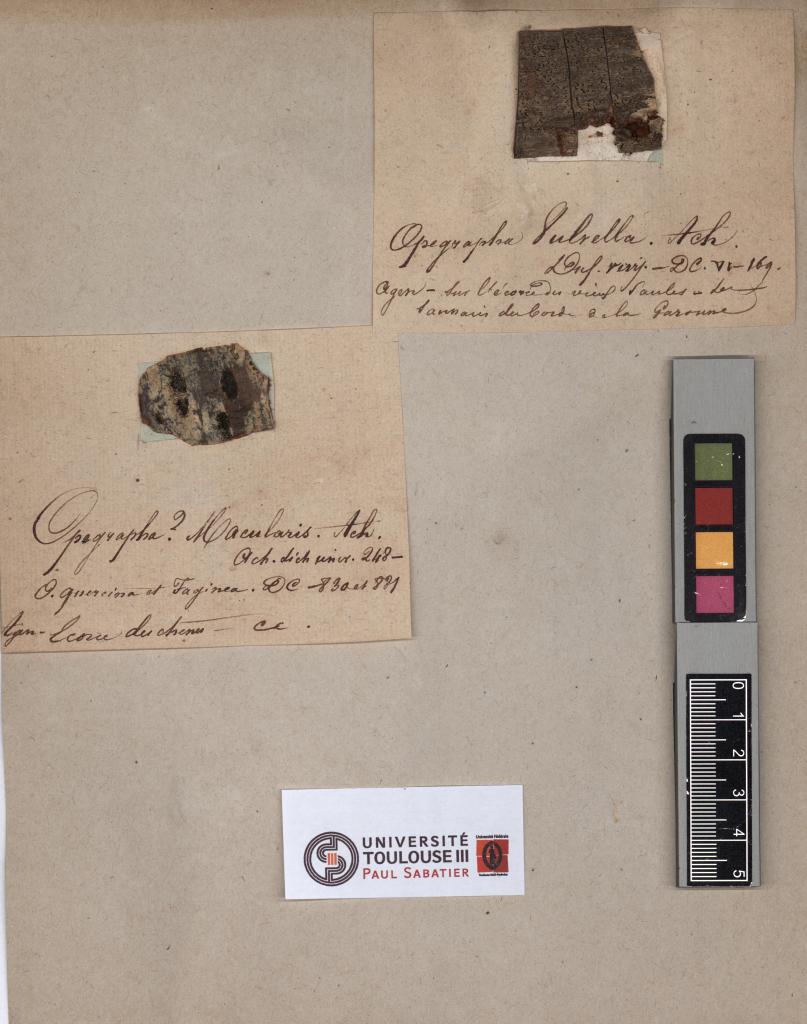 Opegrapha Vulvella. Ach.
Duf. - DC. VI - 169.
Agen - sur l'écorce des vieux Saules - des
bords de la Garonne
Opegrapha? Macularis. Ach.
Ach. lich univ. 248 -
O. quercina et Faginea. DC - 830 et 831
Agen - Ecorce des chenes - CC.
UNIVERSITÉ
TOULOUSE III
PAUL SABATIER
Université Fédérale
0
1
2
3
4
5